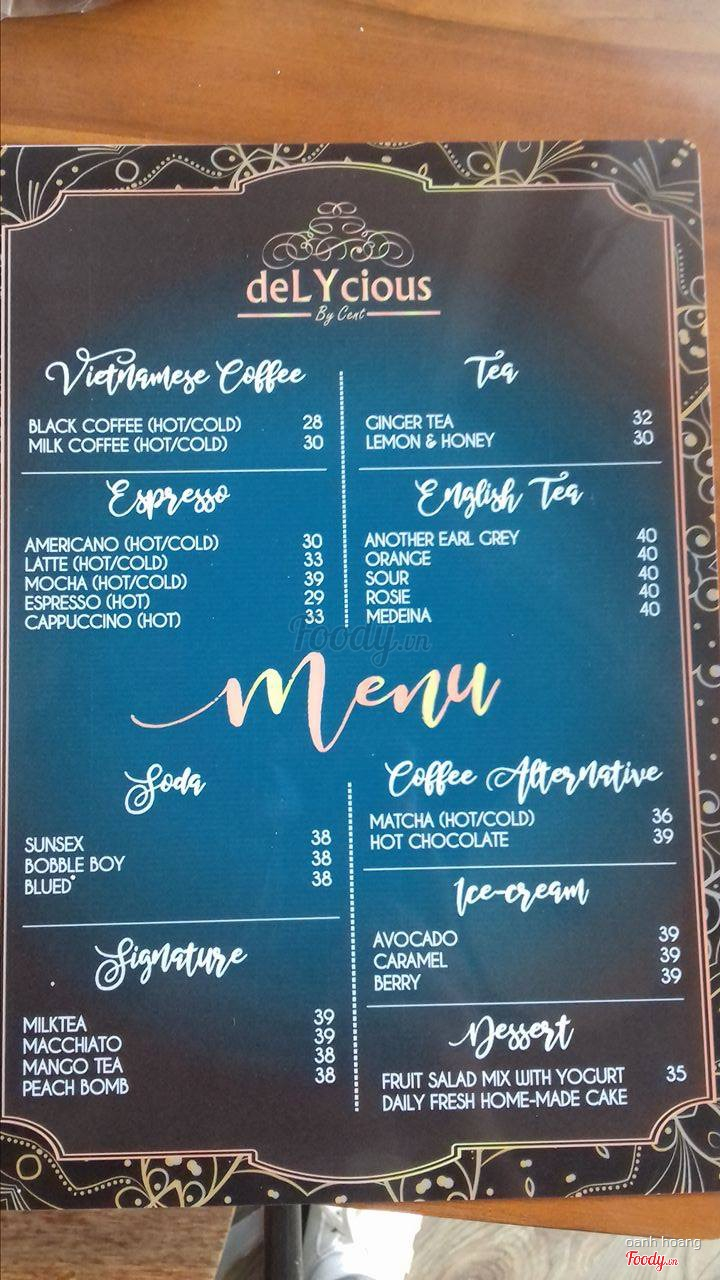 deLYcious
By Cent
Vietnamese Coffee
BLACK COFFEE (HOT/COLD) 28
MILK COFFEE (HOT/COLD) 30
Espresso
AMERICANO (HOT/COLD) 30
LATTE (HOT/COLD) 33
MOCHA (HOT/COLD) 39
ESPRESSO (HOT) 29
CAPPUCCINO (HOT) 33
Tea
GINGER TEA 32
LEMON & HONEY 30
English Tea
ANOTHER EARL GREY 40
ORANGE 40
SOUR 40
ROSIE 40
MEDEINA 40
Foody.vn
Menu
Soda
SUNSEX 38
BOBBLE BOY 38
BLUED 38
Signature
MILKTEA 39
MACCHIATO 39
MANGO TEA 38
PEACH BOMB 38
Coffee Alternative
MATCHA (HOT/COLD) 36
HOT CHOCOLATE 39
Ice-cream
AVOCADO 39
CARAMEL 39
BERRY 39
Dessert
FRUIT SALAD MIX WITH YOGURT 35
DAILY FRESH HOME-MADE CAKE
oanh hoang
Foody.vn